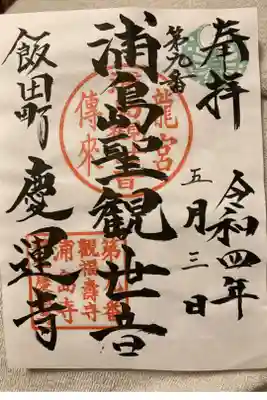 奉拝
令和四年
五月三日
第九番
浦島聖観世音
飯田町 慶運寺
龍宮
傳來
第九番
觀福壽寺
浦島寺